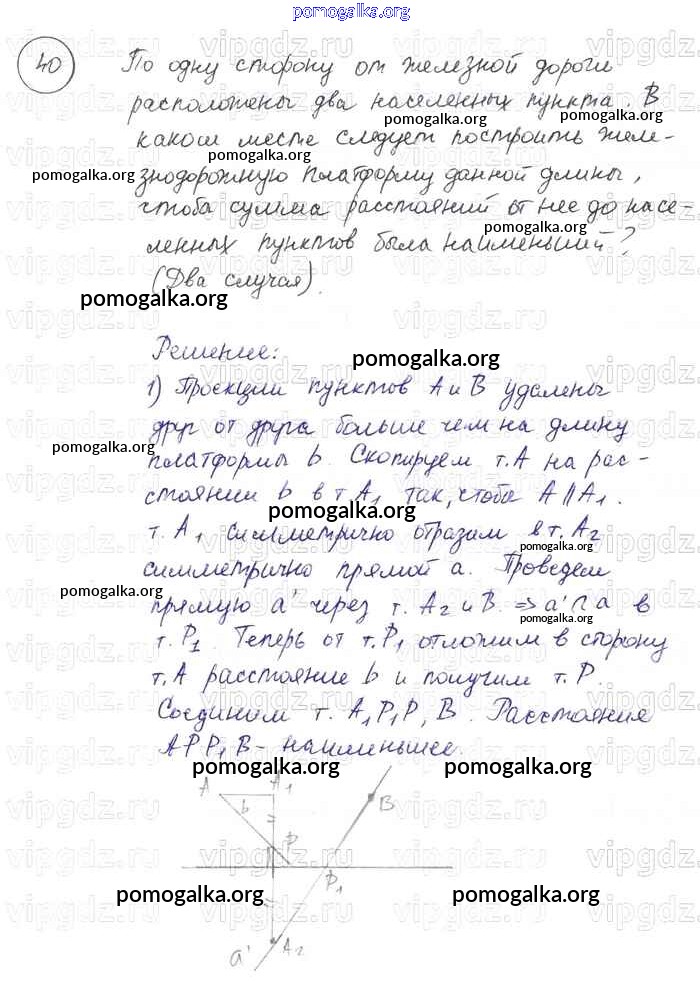 pomogalka.org
40
По одну сторону от железной дороги
расположены два населенных пункта. В
pomogalka.org pomogalka.org
каком месте следует построить желе-
pomogalka.org
pomogalka.org
знодорожную платформу данной длины,
чтоба сумма расстояний от нее до насе-
pomogalka.org
ленных пунктов была наименьший?
(Два случая).
pomogalka.org
Решение:
pomogalka.org
1) Проекции пунктов А и В удалены
друг от друга больше чем на длину
pomogalka.org
платформы b. Скопируем т. А на рас-
стоянии b в т А1 так, чтоба А || А1.
pomogalka.org
т. А1 симметрично отразим в т. А2
pomogalka.org
симметрично прямой а. Проведем
pomogalka.org
прямую а' через т. А2 и В ⇒ а' ∩ а в
т. Р1. Теперь от т. Р1 отложим в сторону
т. А расстояние b и получим т. Р.
Соединим т. А, Р1 Р, В. Расстояние
АРР1В - наименьшее.
pomogalka.org pomogalka.org
A A1
b B
P
P1
pomogalka.org pomogalka.org
a' A2
vipgdz.ru